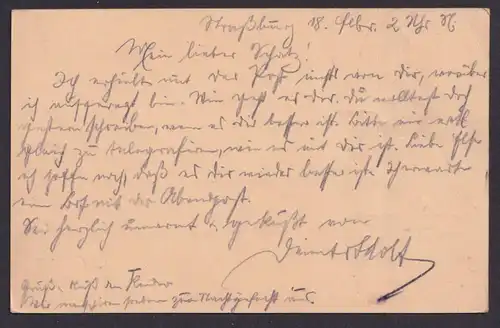 Straßburg 18. Febr. 2 Uhr N.
Mein lieber Schatz!
Ich erhielt mit der Post nichts von dir, worüber
ich aufgeregt bin. Wie geht es dir. Du wolltest doch
gestern schreiben, wenn es dir besser ist. Bitte mir
gleich zu telegrafieren, wie es mit dir ist. Liebe Else
ich hoffe noch, daß es dir wieder besser ist. Ich erwarte
ein Brf mit der Abendpost.
Sei herzlich umarmt u. geküßt von
Adolf
Grüße u. Küß den Kinder
Wir zur Nachtgefecht aus.